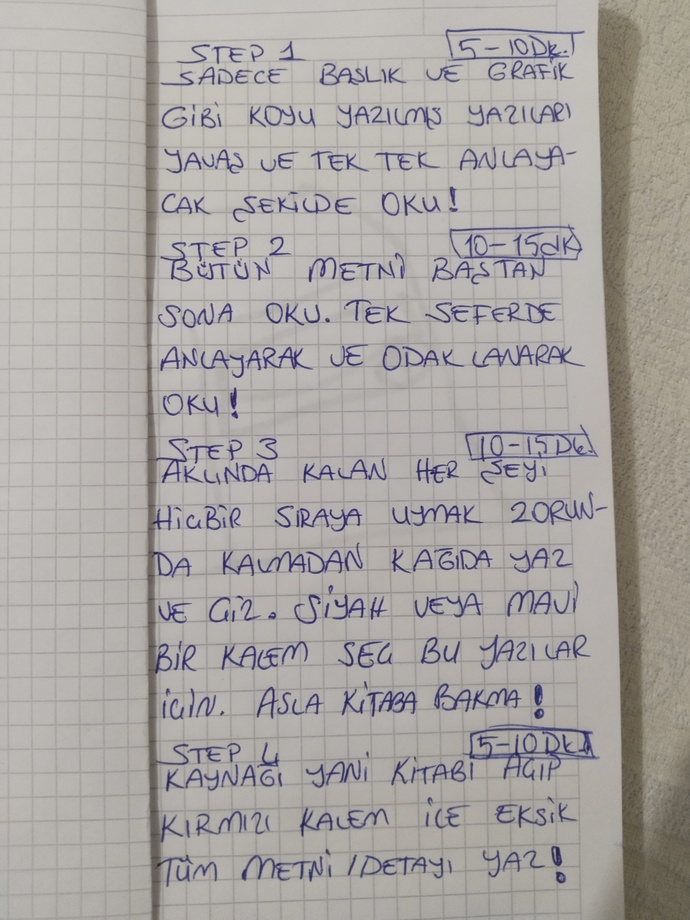 STEP 1 5-10Dk.
SADECE BAŞLIK VE GRAFİK
GİBİ KOYU YAZILMIŞ YAZILARI
YAVAŞ VE TEK TEK ANLAYA-
CAK ŞEKİLDE OKU!
STEP 2 10-15dk
BÜTÜN METNİ BAŞTAN
SONA OKU. TEK SEFERDE
ANLAYARAK VE ODAKLANARAK
OKU!
STEP 3 10-15Dk.
AKLINDA KALAN HER ŞEYİ
HİÇBİR SIRAYA UYMAK ZORUN-
DA KALMADAN KAĞIDA YAZ
VE ÇİZ. SİYAH VEYA MAVİ
BİR KALEM SEÇ BU YAZILAR
İÇİN. ASLA KİTABA BAKMA!
STEP 4 5-10Dk.
KAYNAĞI YANİ KİTABI AÇIP
KIRMIZI KALEM İLE EKSİK
TÜM METNİ/DETAYI YAZ!